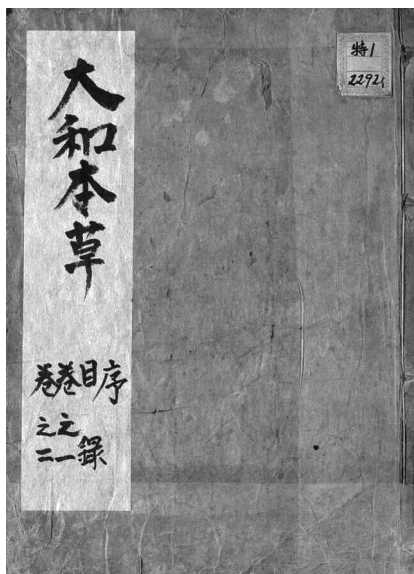 大和本草
序
目録
巻之一
巻之二
特1
2292